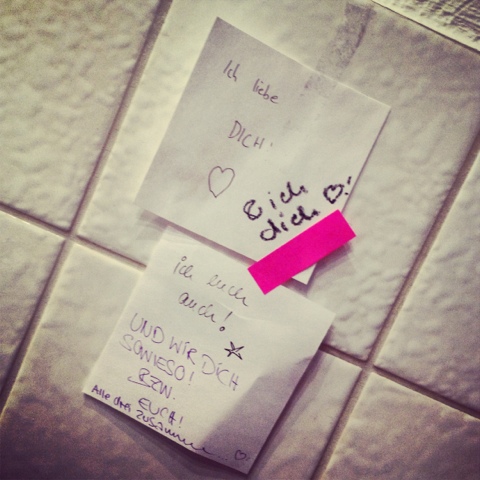 Ich liebe
DICH!
♡
& ich
dich ♡!
ich euch
auch!
UND WIR DICH
SOWIESO!
BZW.
EUCH!
Alle drei zusammen... ♡